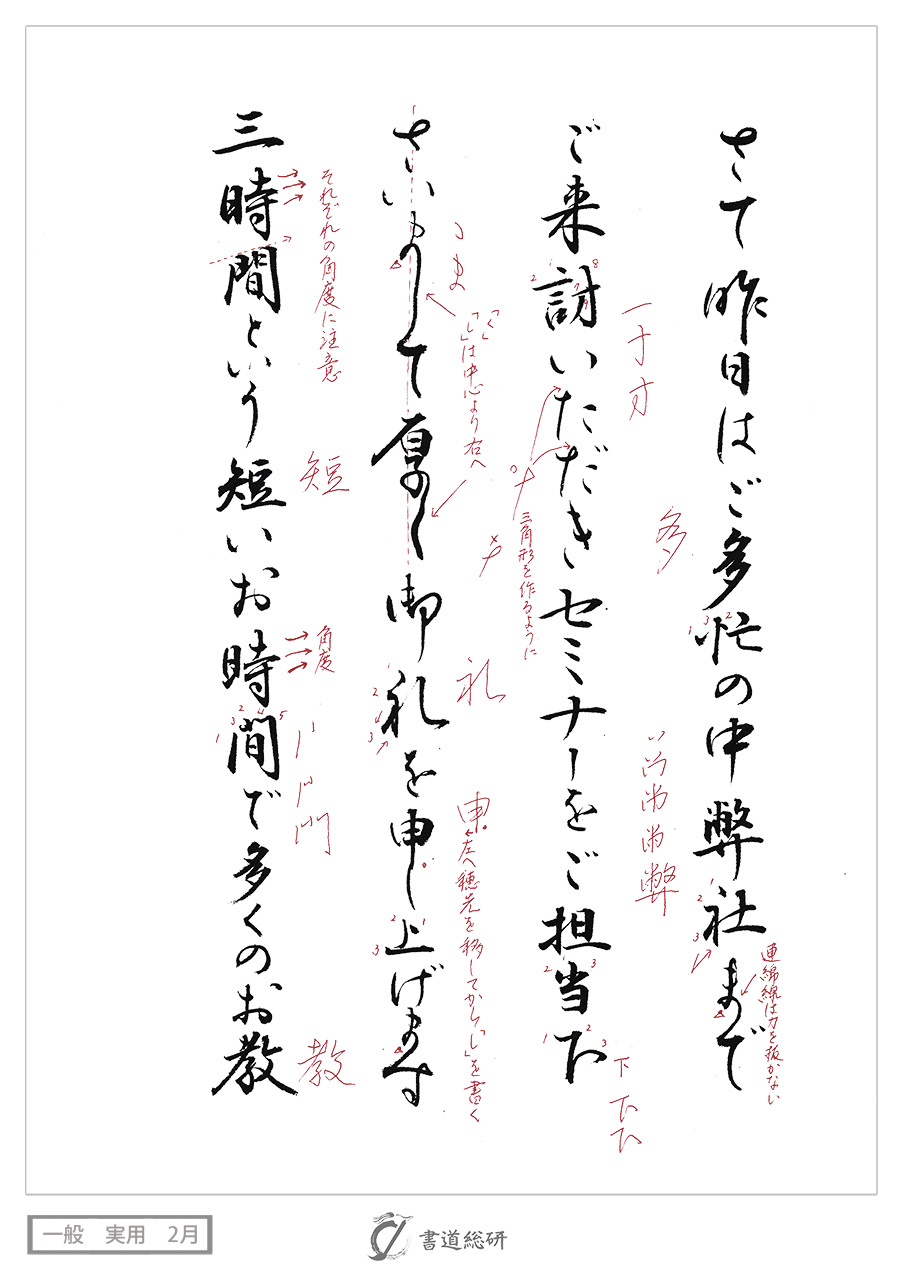 さて昨日はご多忙の中弊社まで
連綿線は力を抜かない
多
弊
ご来訪いただきセミナーをご担当下
下
三角形を作るように
さいまして厚く御礼を申し上げます
ま
「く」
「し」は中心より右へ
礼
申
左へ穂先を移してから「し」を書く
三時間という短いお時間で多くのお教
それぞれの角度に注意
短
角度
門
教
一般 実用 2月
書道総研